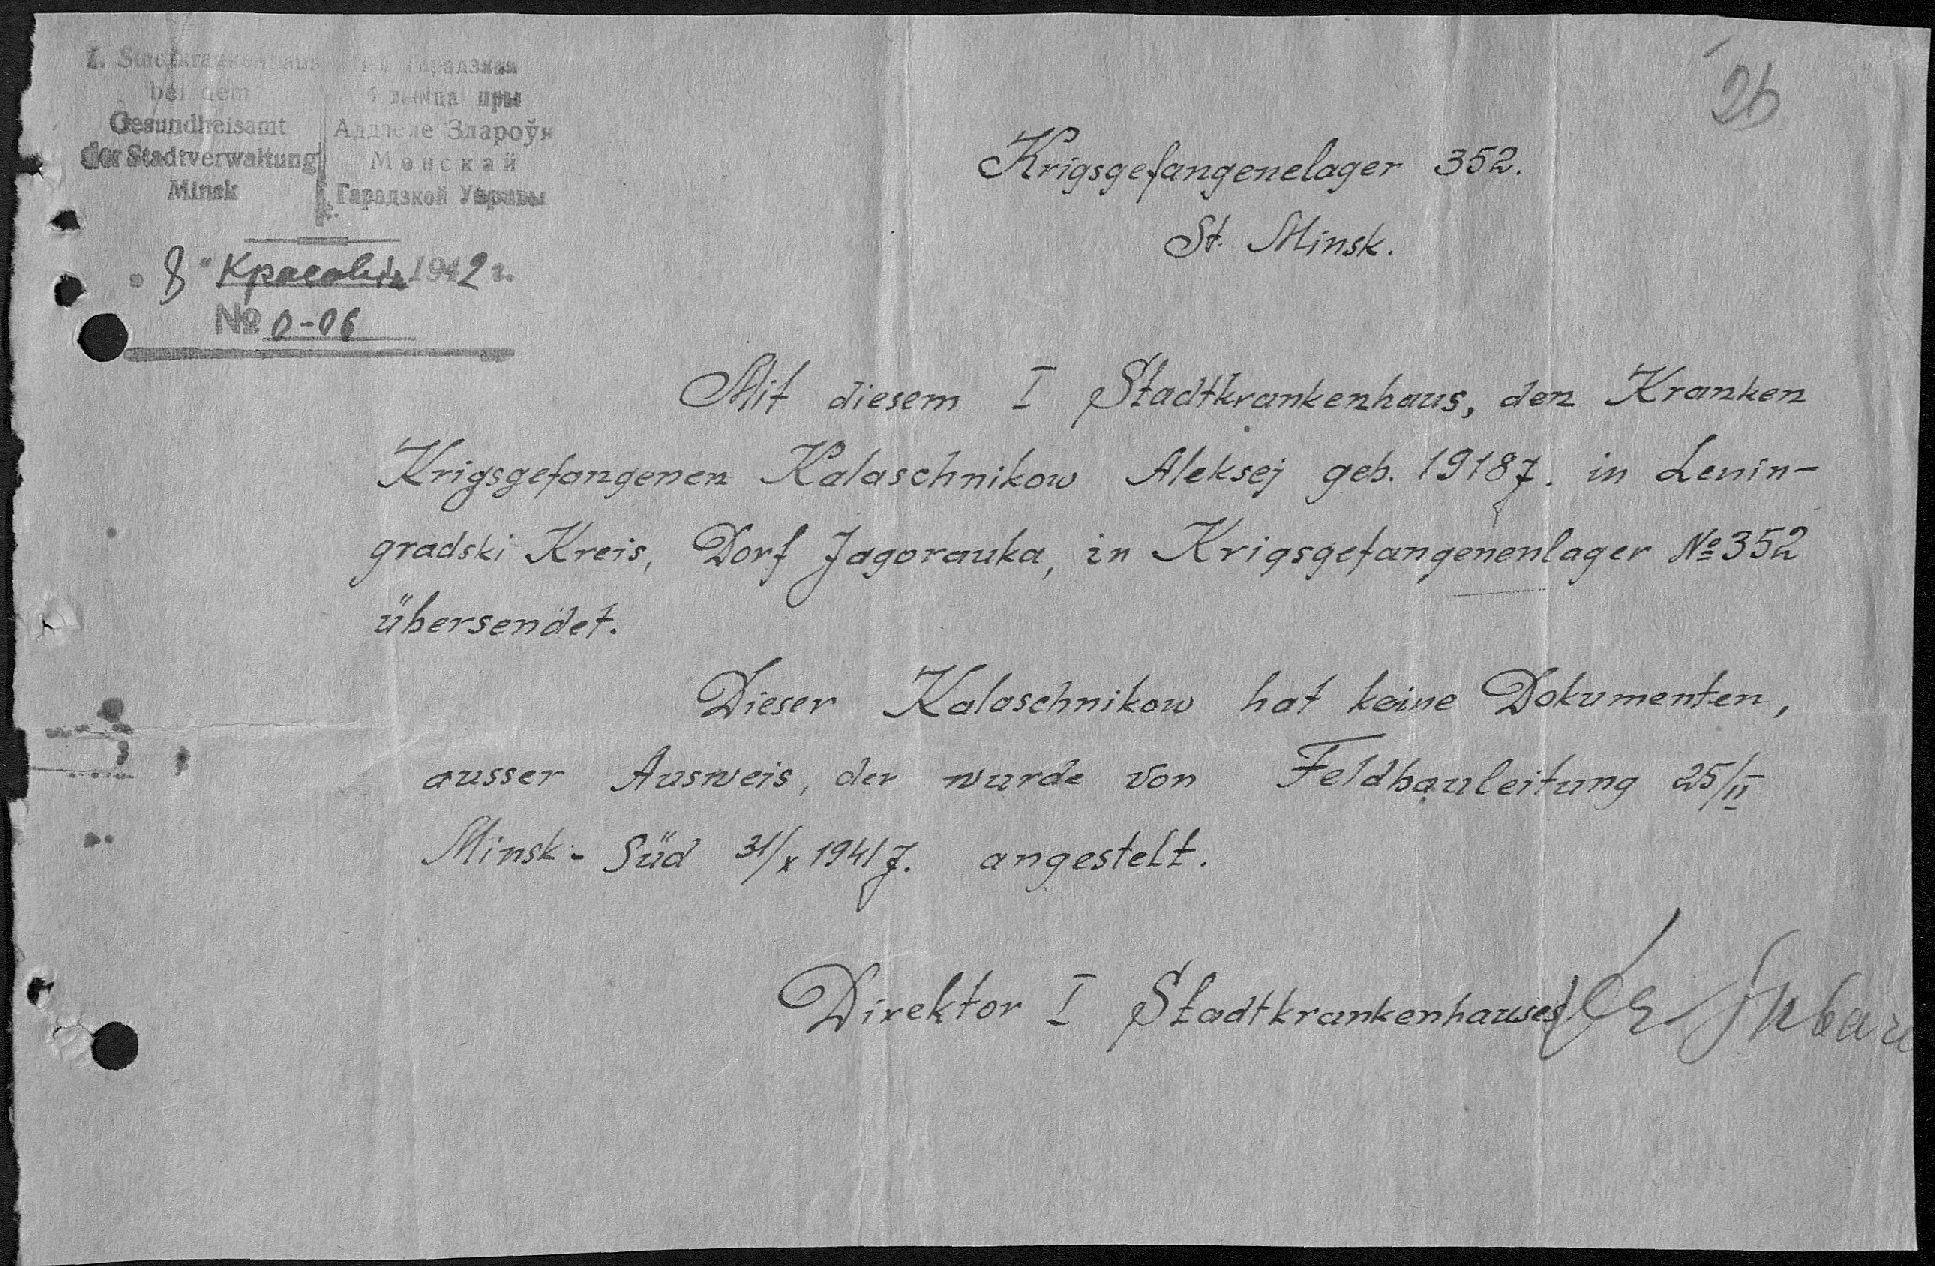 I. Stadtkrankenhaus
bei dem
Gesundheisamt
der Stadtverwaltung
Minsk
Гарадзкая
пры
Аддзеле Здароўя
Менскай
Гарадзкой Управы
"8" Красавіка 1942 г.
№ 0-06
26
Krigsgefangenelager 352.
St. Minsk.
Mit diesem I Stadtkrankenhaus, den Kranken
Krigsgefangenen Kalaschnikow Aleksej geb. 1918 J. in Lenin-
gradski Kreis, Dorf Jagorauka, in Krigsgefangenenlager № 352
übersendet.
Dieser Kalaschnikow hat keine Dokumenten,
ausser Ausweis, der wurde von Feldbauleitung 25/II
Minsk - Süd 31/X 1941 J. angestelt.
Direktor I Stadtkrankenhauses